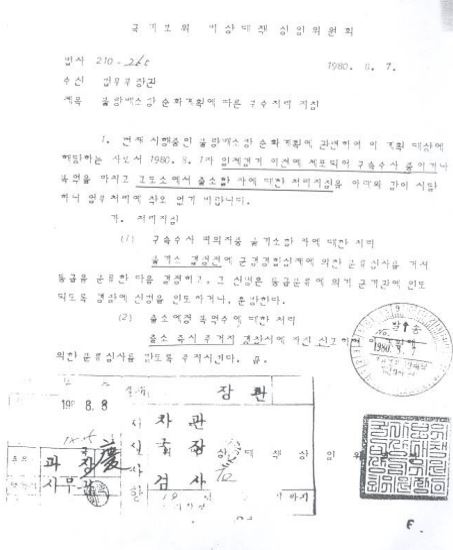 국가보위 비상대책 상임위원회
법사 210-260 1980. 8. 7.
수신 법무부장관
제목 불량배소탕 순화계획에 따른 구속처리 지침
1. 현재 시행중인 불량배소탕 순화계획에 관련하여 이 계획 대상에
해당하는 자로서 1980. 8. 1자 일제검거 이전에 체포되어 구속수사 중이거나
복역을 마치고 교도소에서 출소할 자에 대한 처리지침을 아래와 같이 시달
하니 업무처리에 착오 없기 바랍니다.
가. 처리지침
(1) 구속수사 피의자중 불기소할 자에 대한 처리
불기소 결정전에 군검경합심제에 의한 분류심사를 거쳐
등급을 분류한 다음 결정하고, 그 신병은 등급분류에 의거 군기관에 인도
되도록 경찰에 신병을 인도하거나, 훈방한다.
(2) 출소예정 복역수에 대한 처리
출소 즉시 주거지 경찰서에 자진 신고하여
의한 분류심사를 받도록 주지시킨다. 끝.
발송
No.
1980. 8. 7
8. 8
장관
차관
국장
과장
검사
상 대 책 상 임 위